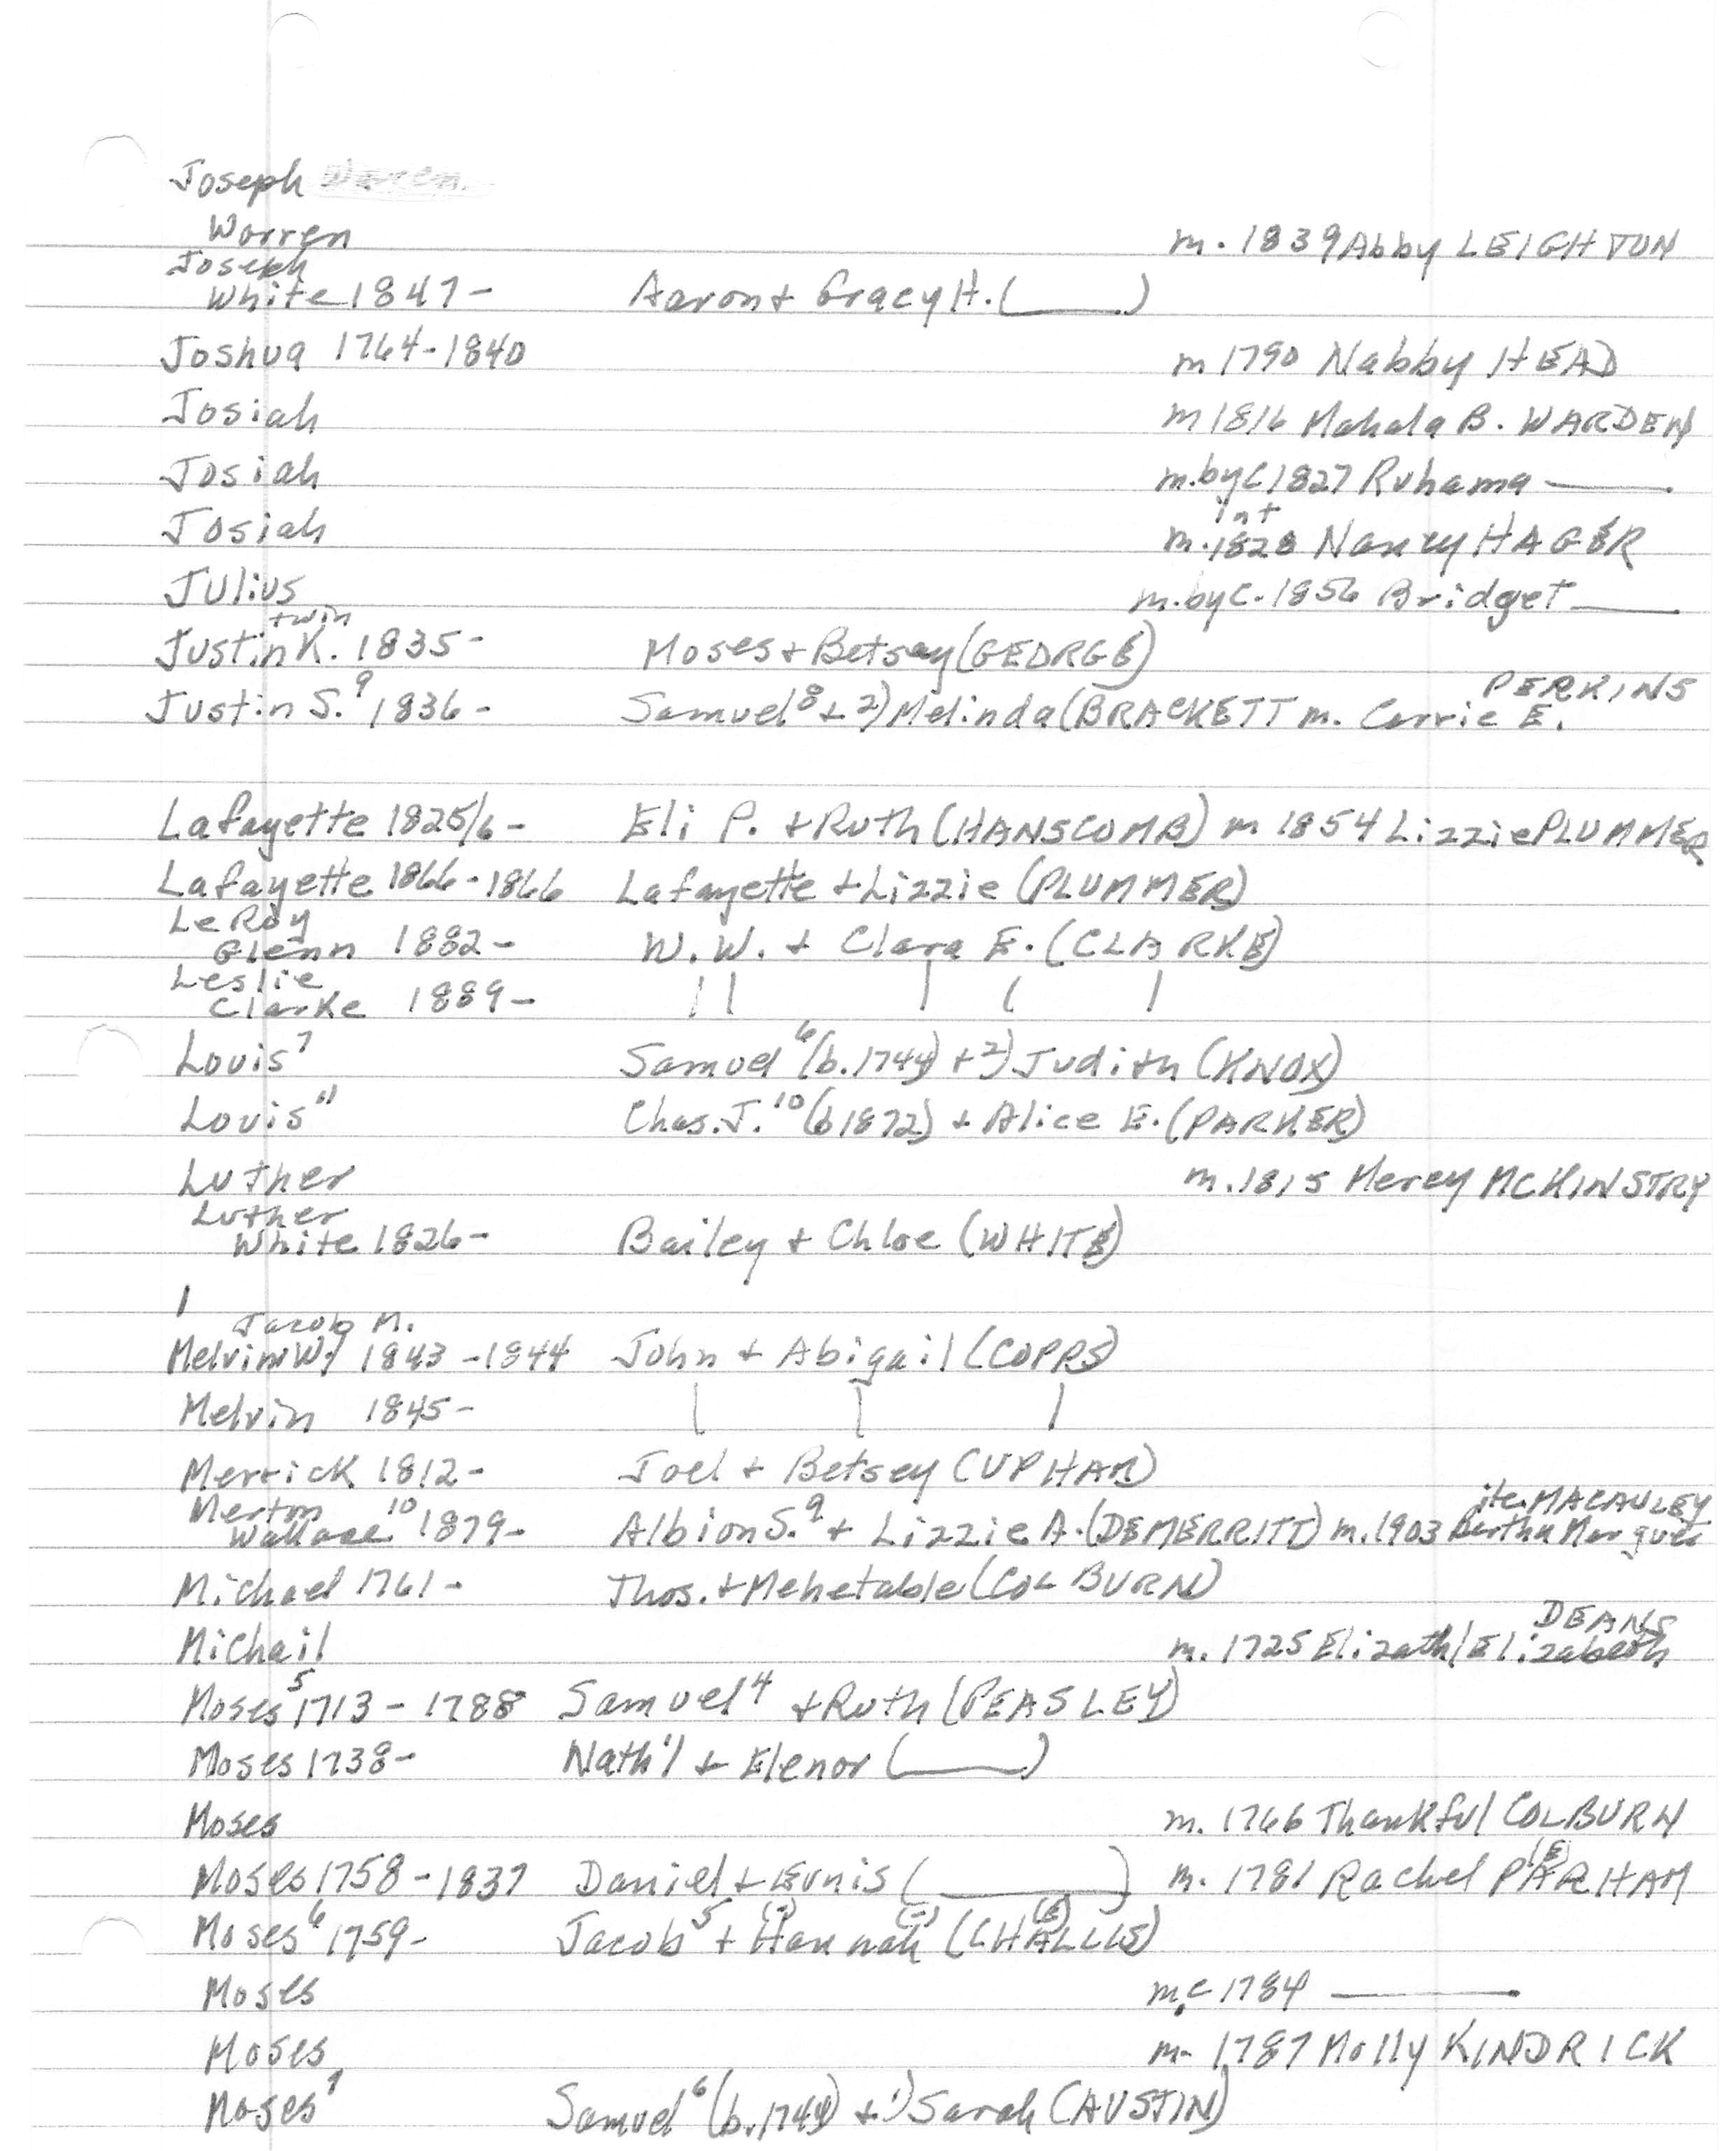 Joseph
Warren m. 1839 Abby LEIGHTON
Joseph
White 1847- Aaron + Gracy H. (____)
Joshua 1764-1840 m 1790 Nabby HEAD
Josiah m 1816 Mahala B. WARDEN
Josiah m. by c 1827 Ruhama ____
int
Josiah m. 1828 Nancy HAGER
Julius m. by c. 1856 Bridget ____
twin
Justin K. 1835- Moses + Betsey (GEORGE)
PERKINS
Justin S.⁹ 1836- Samuel⁸ + 2) Melinda (BRACKETT m. Carrie E.
Lafayette 1825/6- Eli P. + Ruth (HANSCOMB) m 1854 Lizzie PLUMMER
Lafayette 1866-1866 Lafayette + Lizzie (PLUMMER)
LeRoy
Glenn 1882- W. W. + Clara E. (CLARKE)
Leslie
Clarke 1889- | | | ( |
Louis⁷ Samuel⁶ (b. 1744) + 2) Judith (KNOX)
Louis¹¹ Chas. J.¹⁰ (b 1872) + Alice E. (PARKER)
Luther m. 1815 Mercy MCKINSTRY
Luther
White 1826- Bailey + Chloe (WHITE)
Jacob M.
Melvin W/ 1843-1844 John + Abigail (COPPS)
Melvin 1845- | | |
Merrick 1812- Joel + Betsey (UPHAM)
Merton ite MACAULEY
Wallace¹⁰ 1879- Albion S.⁹ + Lizzie A. (DEMERRITT) m. 1903 Bertha Marguer
Michael 1761- Thos. + Mehetable (COLBURN)
DEANS
Michail m. 1725 Elizath/Elizabeth
Moses⁵ 1713-1788 Samuel⁴ + Ruth (PEASLEY)
Moses 1738- Nath'l + Elenor (____)
Moses m. 1766 Thankful COLBURN
(E)
Moses 1758-1837 Daniel + Eunis (____) m. 1781 Rachel PARHAM
(-) (-) (E)
Moses⁶ 1759- Jacob⁵ + Hannah (CHALLIS)
Moses m. c 1784 ____
Moses m- 1787 Molly KINDRICK
Moses⁷ Samuel⁶ (b. 1744) + 1) Sarah (AUSTIN)